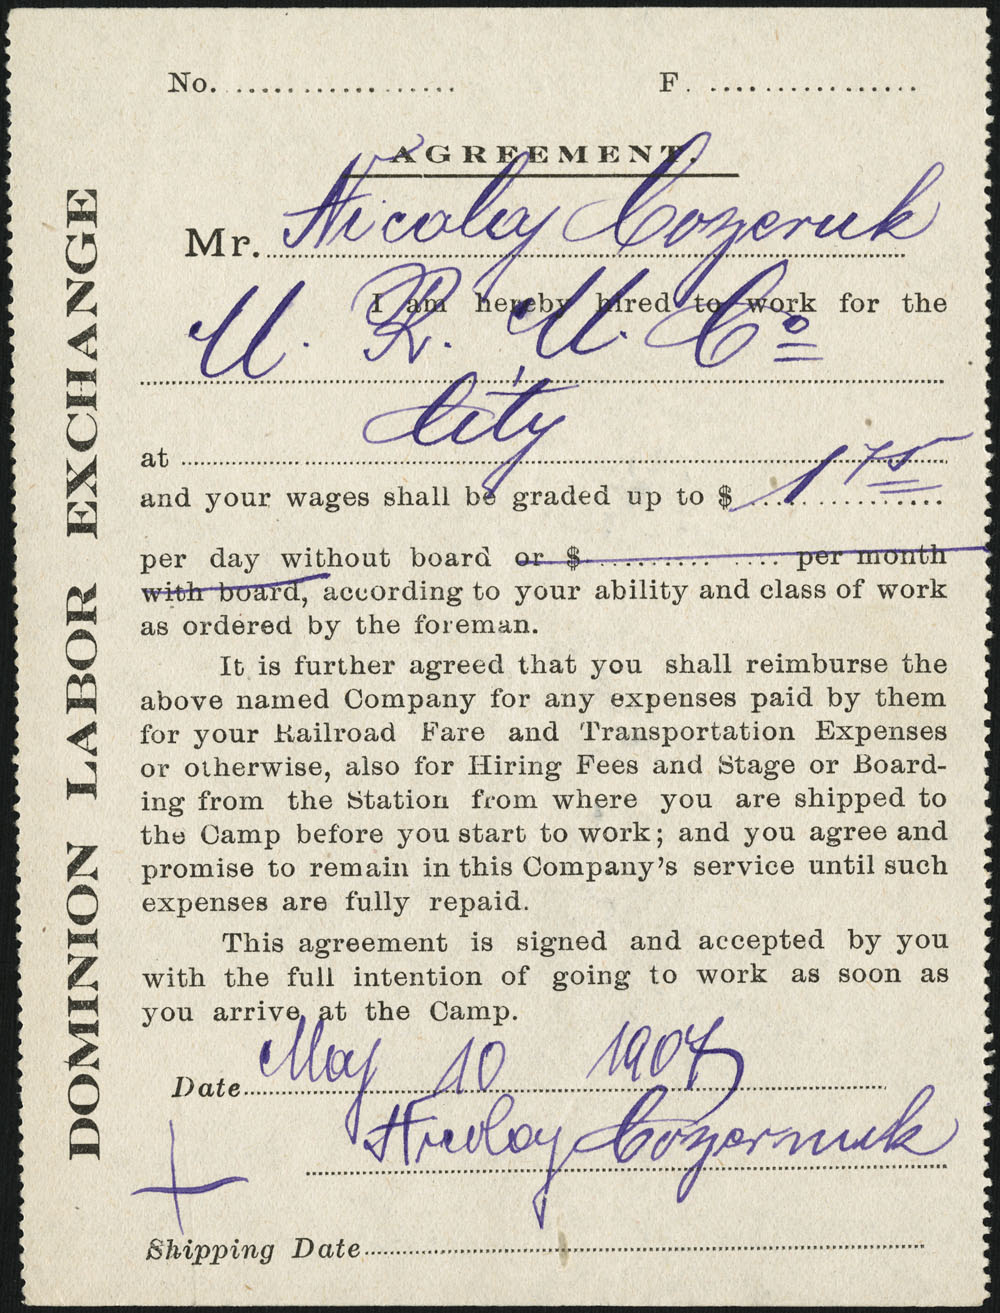 No. .................... F. ..................
AGREEMENT.
Mr. Nicolay Cozeruk
I am hereby hired to work for the
M. R. M. Co
at City
and your wages shall be graded up to $ 1 75
per day without board or $ ............... per month
with board, according to your ability and class of work
as ordered by the foreman.
It is further agreed that you shall reimburse the
above named Company for any expenses paid by them
for your Railroad Fare and Transportation Expenses
or otherwise, also for Hiring Fees and Stage or Board-
ing from the Station from where you are shipped to
the Camp before you start to work; and you agree and
promise to remain in this Company's service until such
expenses are fully repaid.
This agreement is signed and accepted by you
with the full intention of going to work as soon as
you arrive at the Camp.
Date May 10 1907
Nicolay Cozernuk
Shipping Date
DOMINION LABOR EXCHANGE